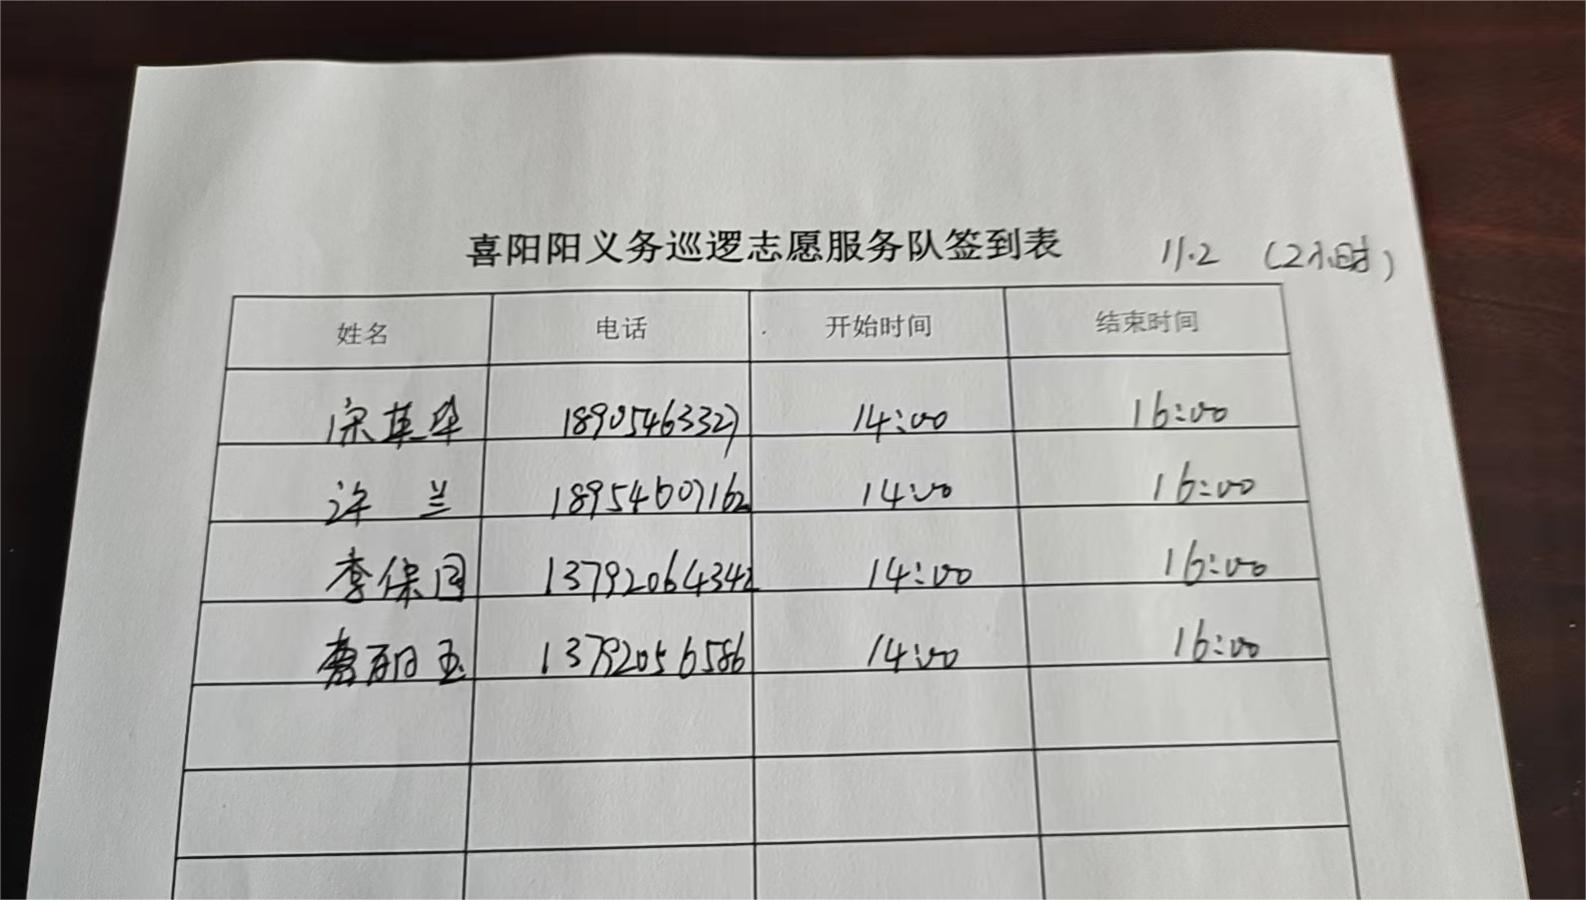 喜阳阳义务巡逻志愿服务队签到表 11.2 (2小时)
姓名 电话 开始时间 结束时间
宋英华 18905463327 14:00 16:00
许兰 18954607162 14:00 16:00
李保国 13792064342 14:00 16:00
丽玉 13792056586 14:00 16:00